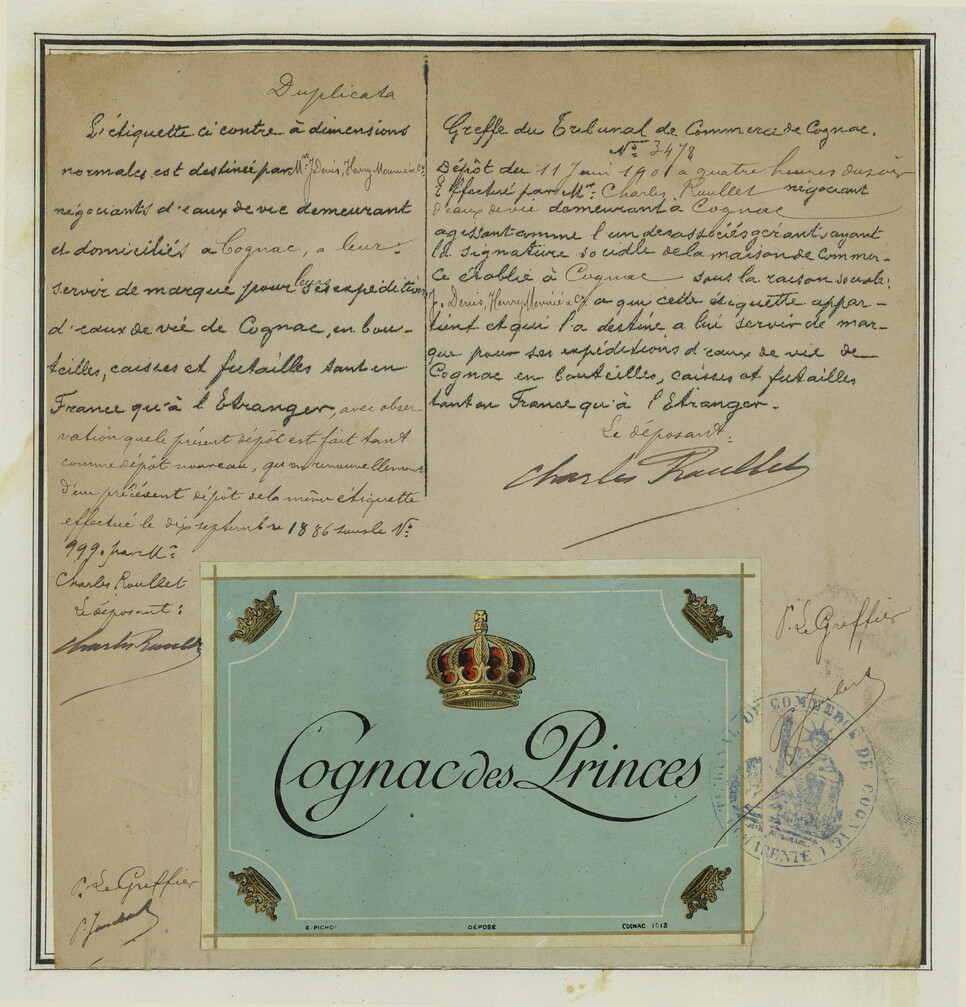 Duplicata
L'étiquette ci contre à dimensions
normales est destinée par Mrs J. Denis, Henry Mounié & Co
négociants d'eaux de vie demeurant
et domiciliés à Cognac, à leur
servir de marque pour leurs expéditions
d'eaux de vie de Cognac, en bou-
teilles, caisses et futailles tant en
France qu'à l'Etranger, avec obser-
vation que le présent dépôt est fait tant
comme dépôt nouveau, qu'en renouvellement
d'un précésent dépôt de la même étiquette
effectué le dix septembre 1886 sous le No:
999. par Mr:
Charles Roullet
Le déposant:
Charles Roullet
P. Le Greffier
Greffe du Tribunal de Commerce de Cognac.
No: 3478
Dépôt du 11 Juin 1901 à quatre heures du soir
Effectué par Mr: Charles Roullet négociant
d'eaux de vie demeurant à Cognac
agissant comme l'un des associés gérants, ayant
la signature sociale de la maison de Commer-
ce établie à Cognac sous la raison sociale:
J. Denis, Henry Mounié & Co a qui cette étiquette appar-
tient et qui l'a destine a lui servir de mar-
que pour ses expéditions d'eaux de vie de
Cognac en bouteilles, caisses et futailles
tant en France qu'à l'Etranger.
Le déposant:
Charles Roullet
P. Le Greffier
TRIBUNAL DE COMMERCE DE COGNAC
CHARENTE
Cognac des Princes
E. PICHOT
DÉPOSÉ
COGNAC 1013